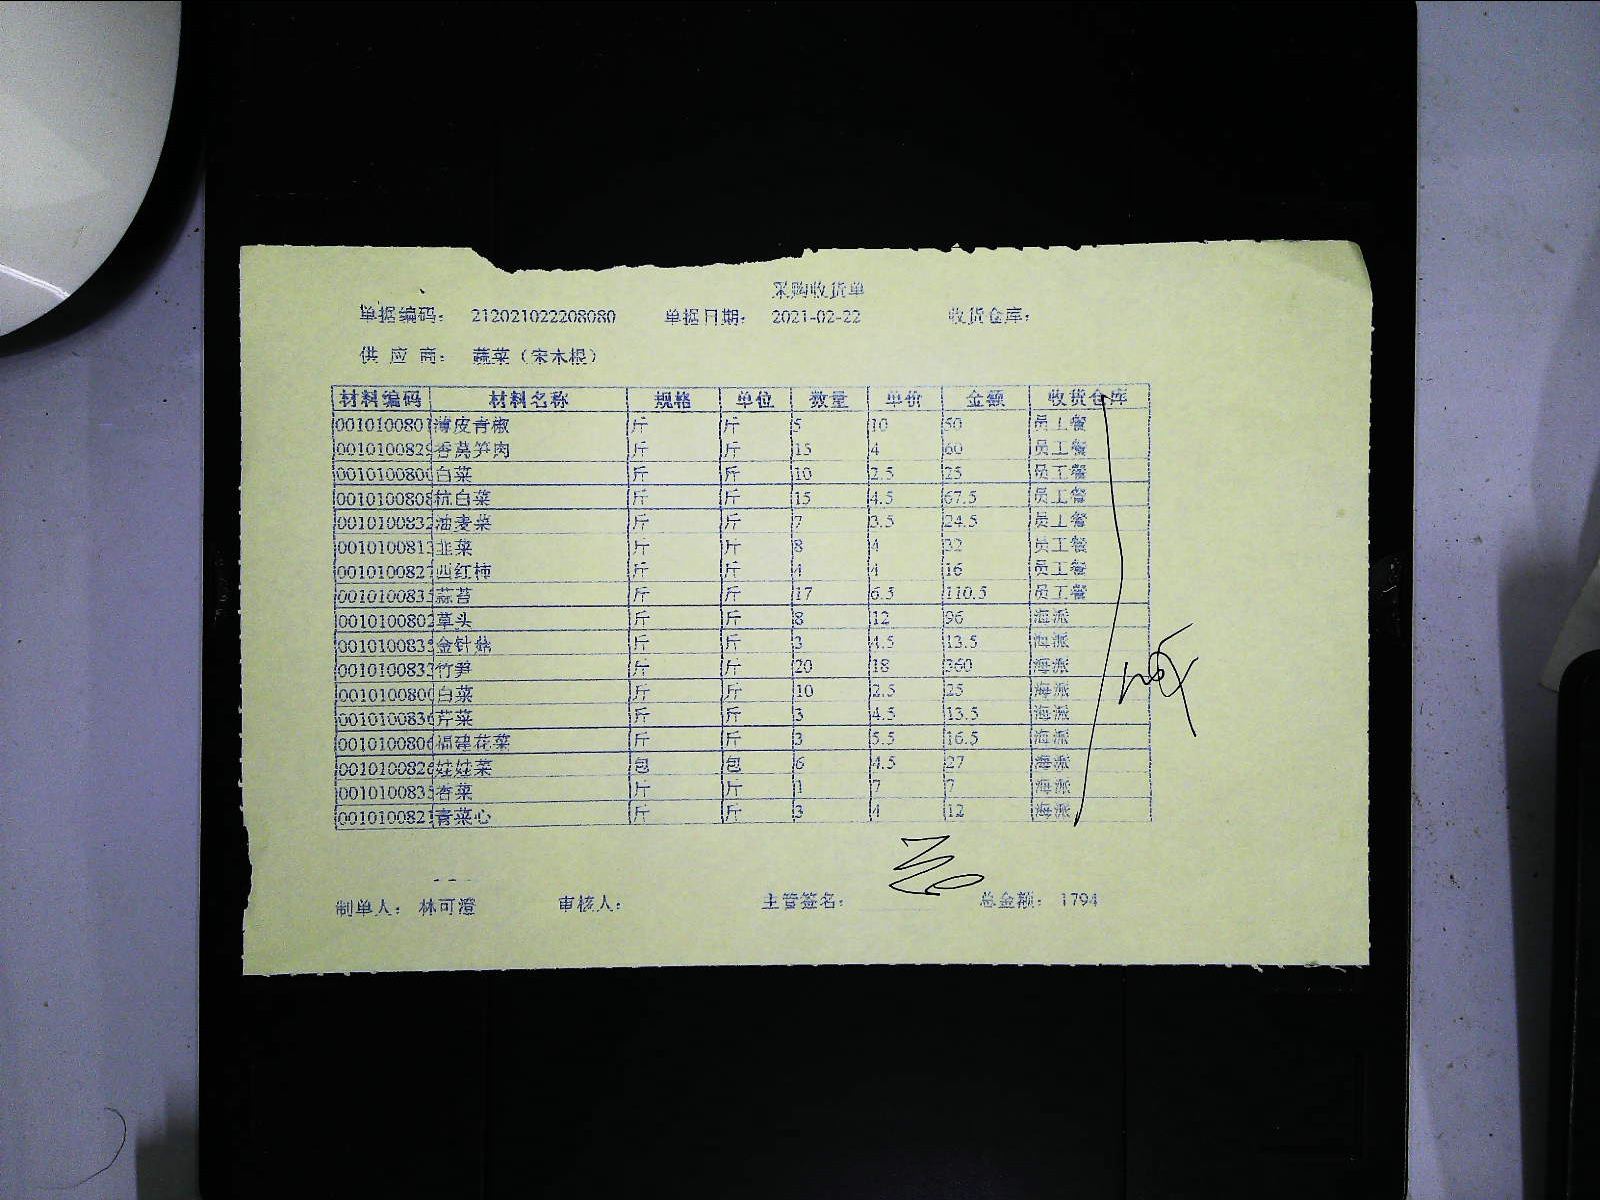 采购收货单
单据编码： 212021022208080 单据日期： 2021-02-22 收货仓库：
供 应 商： 蔬菜（宋木根）
材料编码 材料名称 规格 单位 数量 单价 金额 收货仓库
001010080 薄皮青椒 斤 斤 5 10 50 员工餐
001010082 香莴笋肉 斤 斤 15 4 60 员工餐
001010080 白菜 斤 斤 10 2.5 25 员工餐
001010080 杭白菜 斤 斤 15 4.5 67.5 员工餐
001010083 油麦菜 斤 斤 7 3.5 24.5 员工餐
001010081 韭菜 斤 斤 8 4 32 员工餐
001010082 西红柿 斤 斤 4 4 16 员工餐
001010083 蒜苔 斤 斤 17 6.5 110.5 员工餐
001010080 草头 斤 斤 8 12 96 海派
001010083 金针菇 斤 斤 3 4.5 13.5 海派
001010083 竹笋 斤 斤 20 18 360 海派
001010080 白菜 斤 斤 10 2.5 25 海派
001010083 芹菜 斤 斤 3 4.5 13.5 海派
001010080 福建花菜 斤 斤 3 5.5 16.5 海派
001010082 娃娃菜 包 包 6 4.5 27 海派
001010083 香菜 斤 斤 1 7 7 海派
001010082 青菜心 斤 斤 3 4 12 海派
制单人： 林可澄 审核人： 主管签名： 总金额： 1794